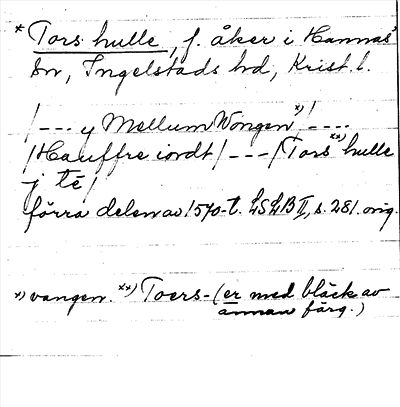 * Tors hulle, f. åker i Hannas
sn, Ingelstads hd, Krist. l.
/--- y Mellum Wongen x)/----
/Hauffre iordt/---/Tors xx) hulle
j té/
förra delen av 1570-t. LSLB II, s. 281. orig.
x) vangen. xx) Toers- (er med bläck av
annan färg.)